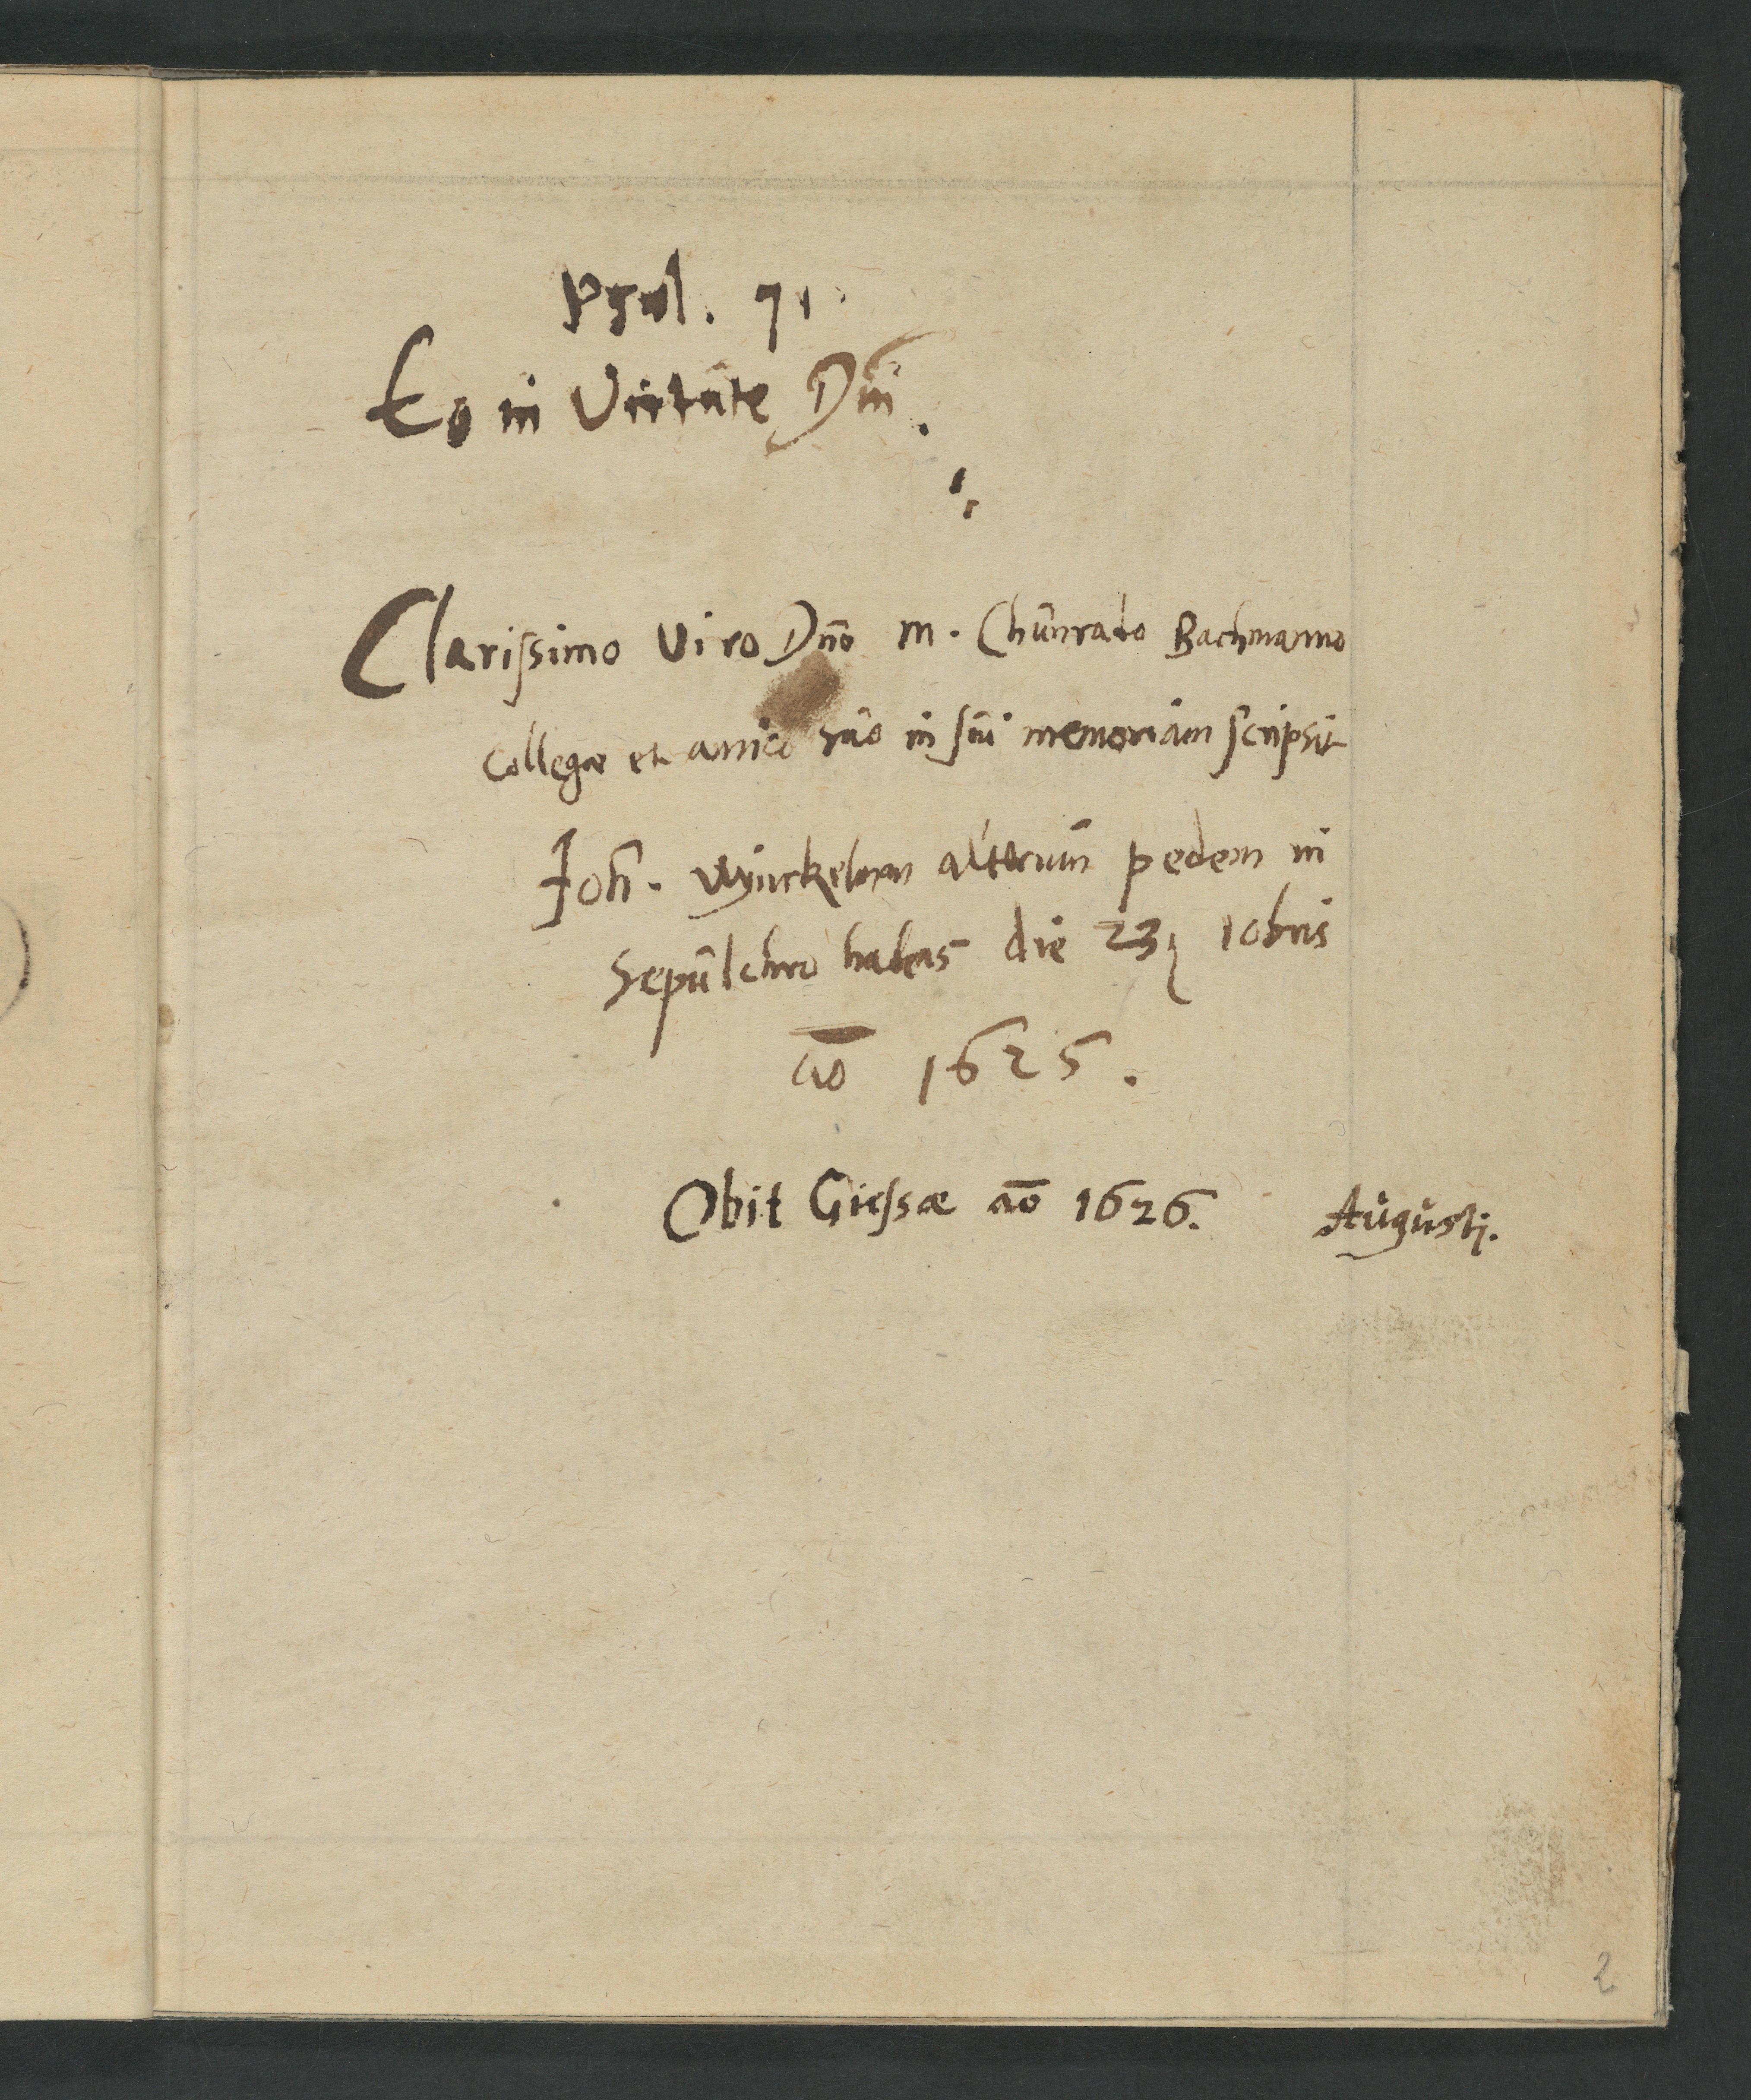 Psal. 71.
Eo in Virtute Dn̄i.
Clarissimo Viro Dn̄o M. Chunrado Bachmanno
Collegæ et amico suo in sui memoriam scripsit
Joh̄. Wynckelman alterum pedem in
Sepulchro habens die 23 10bris
aō 1625.
Obit Giessæ aō 1626. Augusti.
2